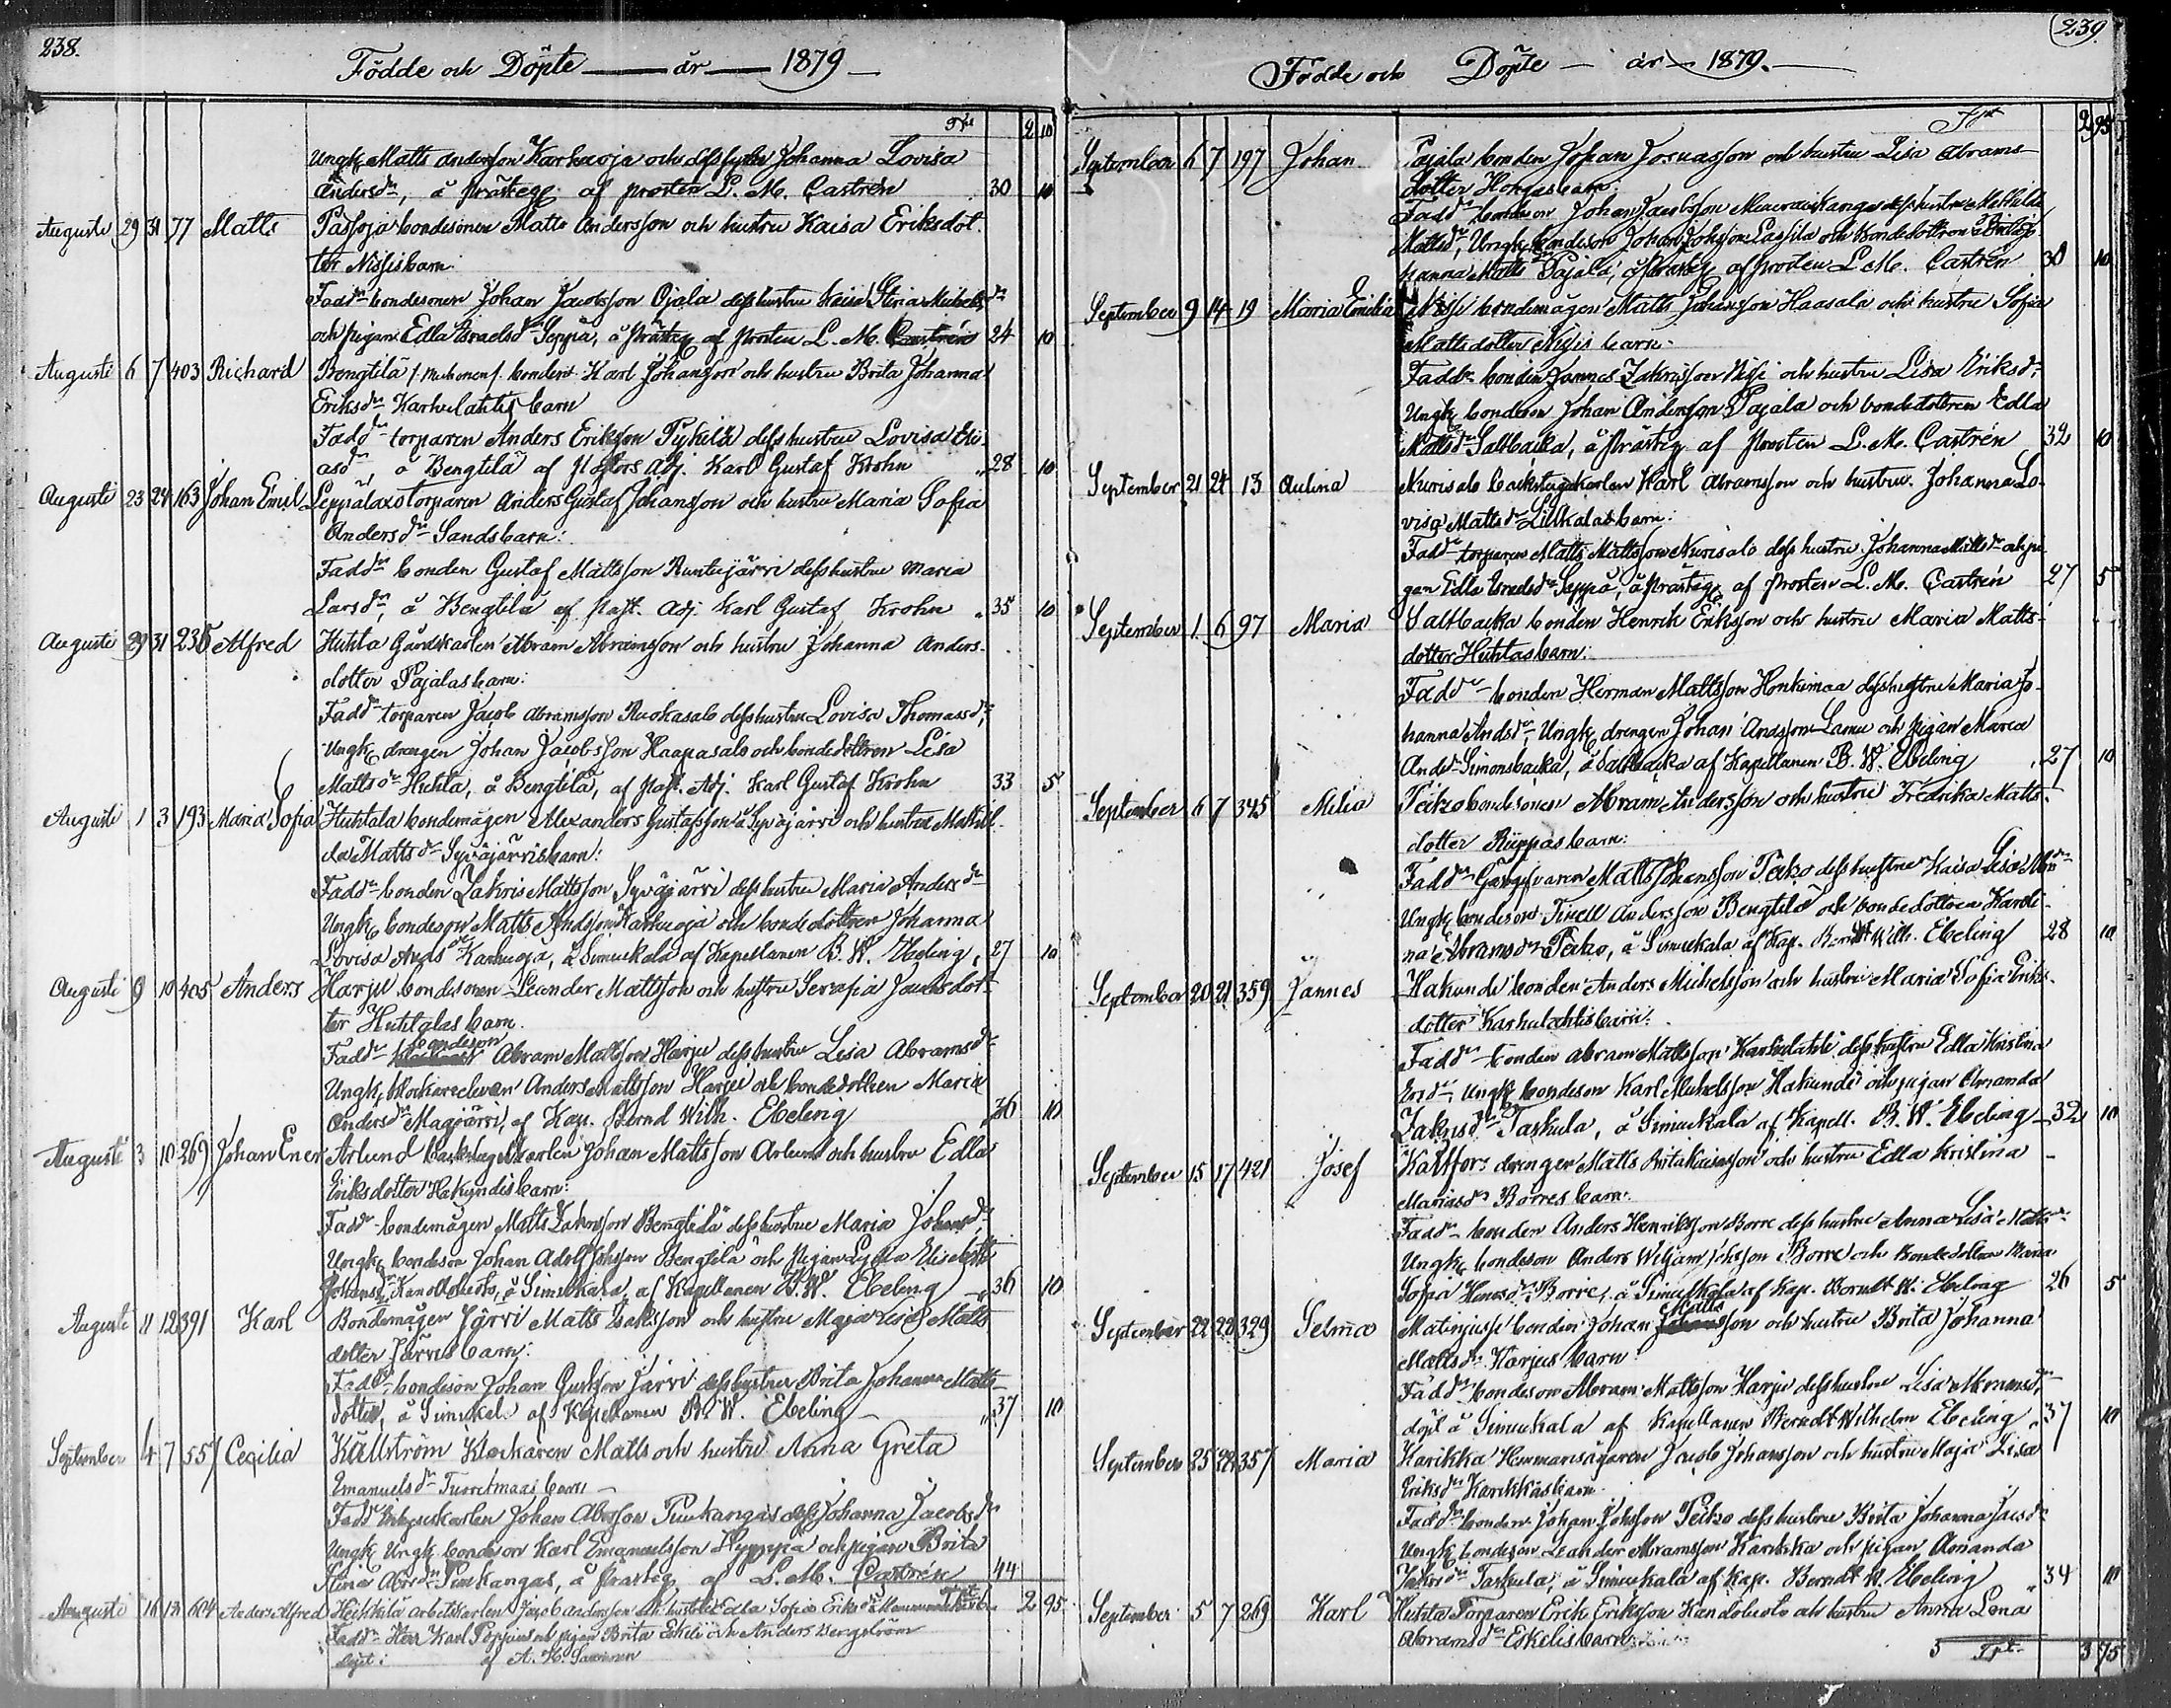 238.
Födde och Döpte — år — 1879 —
Trt 2 10
Ungk. Matts Andersson Karhuoja och dess syster Johanna Lovisa
Andersdr, å Prästeg. af prosten L. M. Castrén 30 10
Augusti 29 31 77 Matts Passoja bondesonen Matts Andersson och hustru Kaisa Eriksdot-
ter Nissis barn:
Faddr bondesonen Johan Jacobsson Ojala dess hustru Kaisa Stina Michelsdr
och pigan Edla Israelsdr Seppä, å Prästeg. af Prosten L. M. Castrén 24 10
Augusti 6 7 403 Richard Bengtilä /Muhonen/ bonden Karl Johansson och hustru Brita Johanna
Eriksdr Karhulahtis barn
Faddr torparen Anders Eriksson Pykilä dess hustru Lovisa Eli-
asdr, å Bengtilä af Pastors adj. Karl Gustaf Krohn 28 10
Augusti 23 24 163 Johan Emil Leppälaxs torparen Anders Gustaf Johansson och hustru Maria Sofia
Andersdr Sands barn:
Faddr bonden Gustaf Mattsson Runtujärvi dess hustru Maria
Larsdr, å Bengtilä af Past. Adj. Karl Gustaf Krohn 35 10
Augusti 29 31 235 Alfred Huhta Gårdskarlen Abram Abramsson och hustru Johanna Anders-
dotter Pajalas barn:
Faddr torparen Jacob Abramsson Ruokasalo dess hustru Lovisa Thomasdr,
Ungk. drengen Johan Jacobsson Haapasalo och bondedottren Lisa
Mattsdr Huhta, å Bengtilä, af Past. Adj. Karl Gustaf Krohn 33 5
Augusti 1 3 193 Maria Sofia Huhtala bondemågen Alexanders Gustafsson å Syväjärvi och hustru Mathil-
da Mattsdr Syväjärvis barn:
Faddr bonden Zakris Mattsson Syväjärvi dess hustru Maria Andersdr
Ungk. bondeson Matts Andsson Karhuoja och bondedottren Johanna
Lovisa Andsdr Karhuoja, å Simukala af Kapellanen B. W. Ebeling 27 10
Augusti 9 10 405 Anders Harju bondesonen Leander Mattsson och hustru Serafia Joensdot-
ter Huhtalas barn.
bondeson
Faddr Abram Mattsson Harju dess hustru Lisa Abramsdr
Ungk. klockareeleven Anders Mattsson Harju och bondedottren Maria
Andersdr Magojärvi, af Kap. Bernd Wilh. Ebeling 36 10
Augusti 3 10 269 Johan Ener Arlund backstug. karlen Johan Mattsson Arlund och hustru Edla
Eriksdotter Hakundis barn:
Faddr bondemågen Matts Zakrisson Bengtilä dess hustru Maria Johansdr,
Ungk. bondeson Johan Adolf Johsson Bengtilä och Pigan Lydia Elisabeth
Johansdr Kandolusto, å Simukala, af Kapellanen B. W. Ebeling 36 10
Augusti 11 12 391 Karl Bondemågen Järvi Matts Isaksson och hustru Maja Lisa Matts
dotter Järvis barn:
Faddr bondeson Johan Gustsson Järvi dess hustru Brita Johanna Matts-
dotter, å Simukala af Kapellanen B. W. Ebeling 37 10
September 4 7 557 Cecilia Källström Klockaren Matts och hustru Anna Greta
Emanuelsdr Tuoremaas barn —
Faddr Johan Abrsson Purkangas dess Johanna Jacobsdr
Ungk. Ungk. bondeson Karl Emanuelsson Hyyppä och pigan Brita
Stina Abrsdr Purkangas, å Prästeg. af L. M. Castrén 44
Augusti 16 18 604 Anders Alfred Heikkilä arbetskarlen Jacob Andersson och hustru Edla Sofia Eriksdr barn Trt 2 95
Faddr Herr Karl Poppius och pigan Brita Eskeli och Anders Bergström
döpt: af A. H.
239.
Födde och Döpte — år — 1879. —
Trt 2 95
September 6 7 197 Johan Pajala bonden Johan Josuasson och hustru Lisa Abrams-
dotter Hongas barn:
Faddr bondeson Johan Jacobsson dess hustru Mathilda
Mattsdr, Ungk. bondeson Johan Johsson Lassila och bondedottren Brita Jo-
hanna Mattsdr Pajala, å Prästeg. af prosten L. M. Castrén 30 10
September 9 14 19 Maria Emilia Nissi bondemågen Matts Johansson Haasala och hustru Sofia
Mattsdotter Nissis barn:
Faddr bonden Jannes Zakrisson Nissi och hustru Lisa Eriksdr,
Ungk. bondeson Johan Andersson Pajala och bondedottren Edla
Mattsdr Saltbacka, å Prästeg. af Prosten L. M. Castrén 32 10
September 21 24 13 Aulina Nurisalo backstugukarlen Karl Abramsson och hustru Johanna Lo-
visa Mattsdr Lillkalas barn:
Faddr torparen Matts Mattsson Nurisalo dess hustru Johanna Mattsdr och pi-
gan Edla Israelsdr Seppä, å Prästeg. af Prosten L. M. Castrén 27 5
September 1 6 97 Maria Saltbacka bonden Henrik Eriksson och hustru Maria Matts-
dotter Huhtas barn:
Faddr bonden Herman Mattsson Honkimaa dess hustru Maria Jo-
hanna Andsdr, Ungk. drengen Johan Andsson Lamu och pigan Maria
Andsdr Simonsbacka, å Saltbacka af Kapellanen B. W. Ebeling 27 10
September 6 7 345 Milia Peitzo bondesonen Abram Andersson och hustru Fredrika Matts-
dotter Rüppas barn:
Faddr Matts Johansson Peitzo dess hustru Kaisa Lisa
Ungk. bondeson Finell Andersson Bengtilä och bondedottren Karoli-
na Abramsdr Peitzo, å Simukala af Kap. Berndt Wilh. Ebeling 28 10
September 20 21 359 Jannes Hakunti bonden Anders Michelsson och hustru Maria Sofia Eriks-
dotter Karhulahtis barn:
Faddr bonden Abram Mattsson Karhulahti dess hustru Edla Kristina
Ersdr, Ungk. bondeson Karl Michelsson Hakundi och pigan Amanda
Zakrisdr Taskula, å Simukala af Kapell. B. W. Ebeling — 32 10
September 15 17 421 Josef Kattfors drengen Matts Britakaisasson och hustru Edla Kristina
Mariasdr Borres barn:
Faddr bonden Anders Henriksson Borre dess hustru Anna Lisa Mattsdr
Ungk. bondeson Anders Wiljam Johsson Borre och bondedottren Maria
Sofia Henrsdr Borre, å Simukala af Kap. Berndt W. Ebeling 26 5
September 22 28 329 Selma Matinjussi bonden Johan Mattsson och hustru Brita Johanna
Mattsdr Harjus barn:
Faddr bondeson Abram Mattsson Harju dess hustru Lisa Abramsdr,
döpt å Simukala af Kapellanen Berndt Wilhelm Ebeling 37 10
September 25 28 357 Maria Karikka Hemmansägaren Jacob Johansson och hustru Maja Lisa
Eriksdr Karikkas barn.
Faddr bonden Johan Johsson Peitzo dess hustru Brita Johanna Jacsdr
Ungk. bondeson Leander Abramsson Karikka och pigan Amanda
Zakrisdr Taskula, å Simukala af Kap. Berndt W. Ebeling 34 10
September 5 7 269 Karl Huhta Torparen Erik Eriksson Kandolusto och hustru Anna Lena
Abramsdr Eskelis barn
Trt 3 75